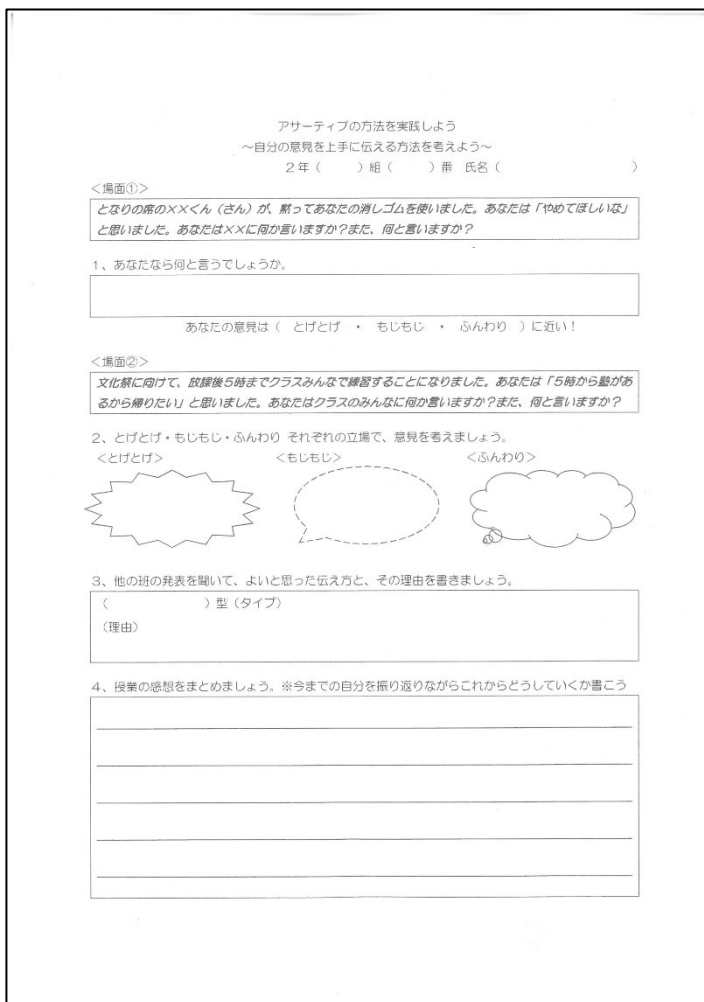 アサーティブの方法を実践しよう
～自分の意見を上手に伝える方法を考えよう～
2年(　　)組(　　)番 氏名(　　　　　　　　)
＜場面①＞
となりの席の××くん（さん）が、黙ってあなたの消しゴムを使いました。あなたは「やめてほしいな」
と思いました。あなたは××に何か言いますか？また、何と言いますか？
1、あなたなら何と言うでしょうか。
あなたの意見は（　とげとげ　・　もじもじ　・　ふんわり　）に近い！
＜場面②＞
文化祭に向けて、放課後5時までクラスみんなで練習することになりました。あなたは「5時から塾があ
るから帰りたい」と思いました。あなたはクラスのみんなに何か言いますか？また、何と言いますか？
2、とげとげ・もじもじ・ふんわり それぞれの立場で、意見を考えましょう。
＜とげとげ＞　＜もじもじ＞　＜ふんわり＞
3、他の班の発表を聞いて、よいと思った伝え方と、その理由を書きましょう。
（　　　　　　　）型（タイプ）
（理由）
4、授業の感想をまとめましょう。※今までの自分を振り返りながらこれからどうしていくか書こう